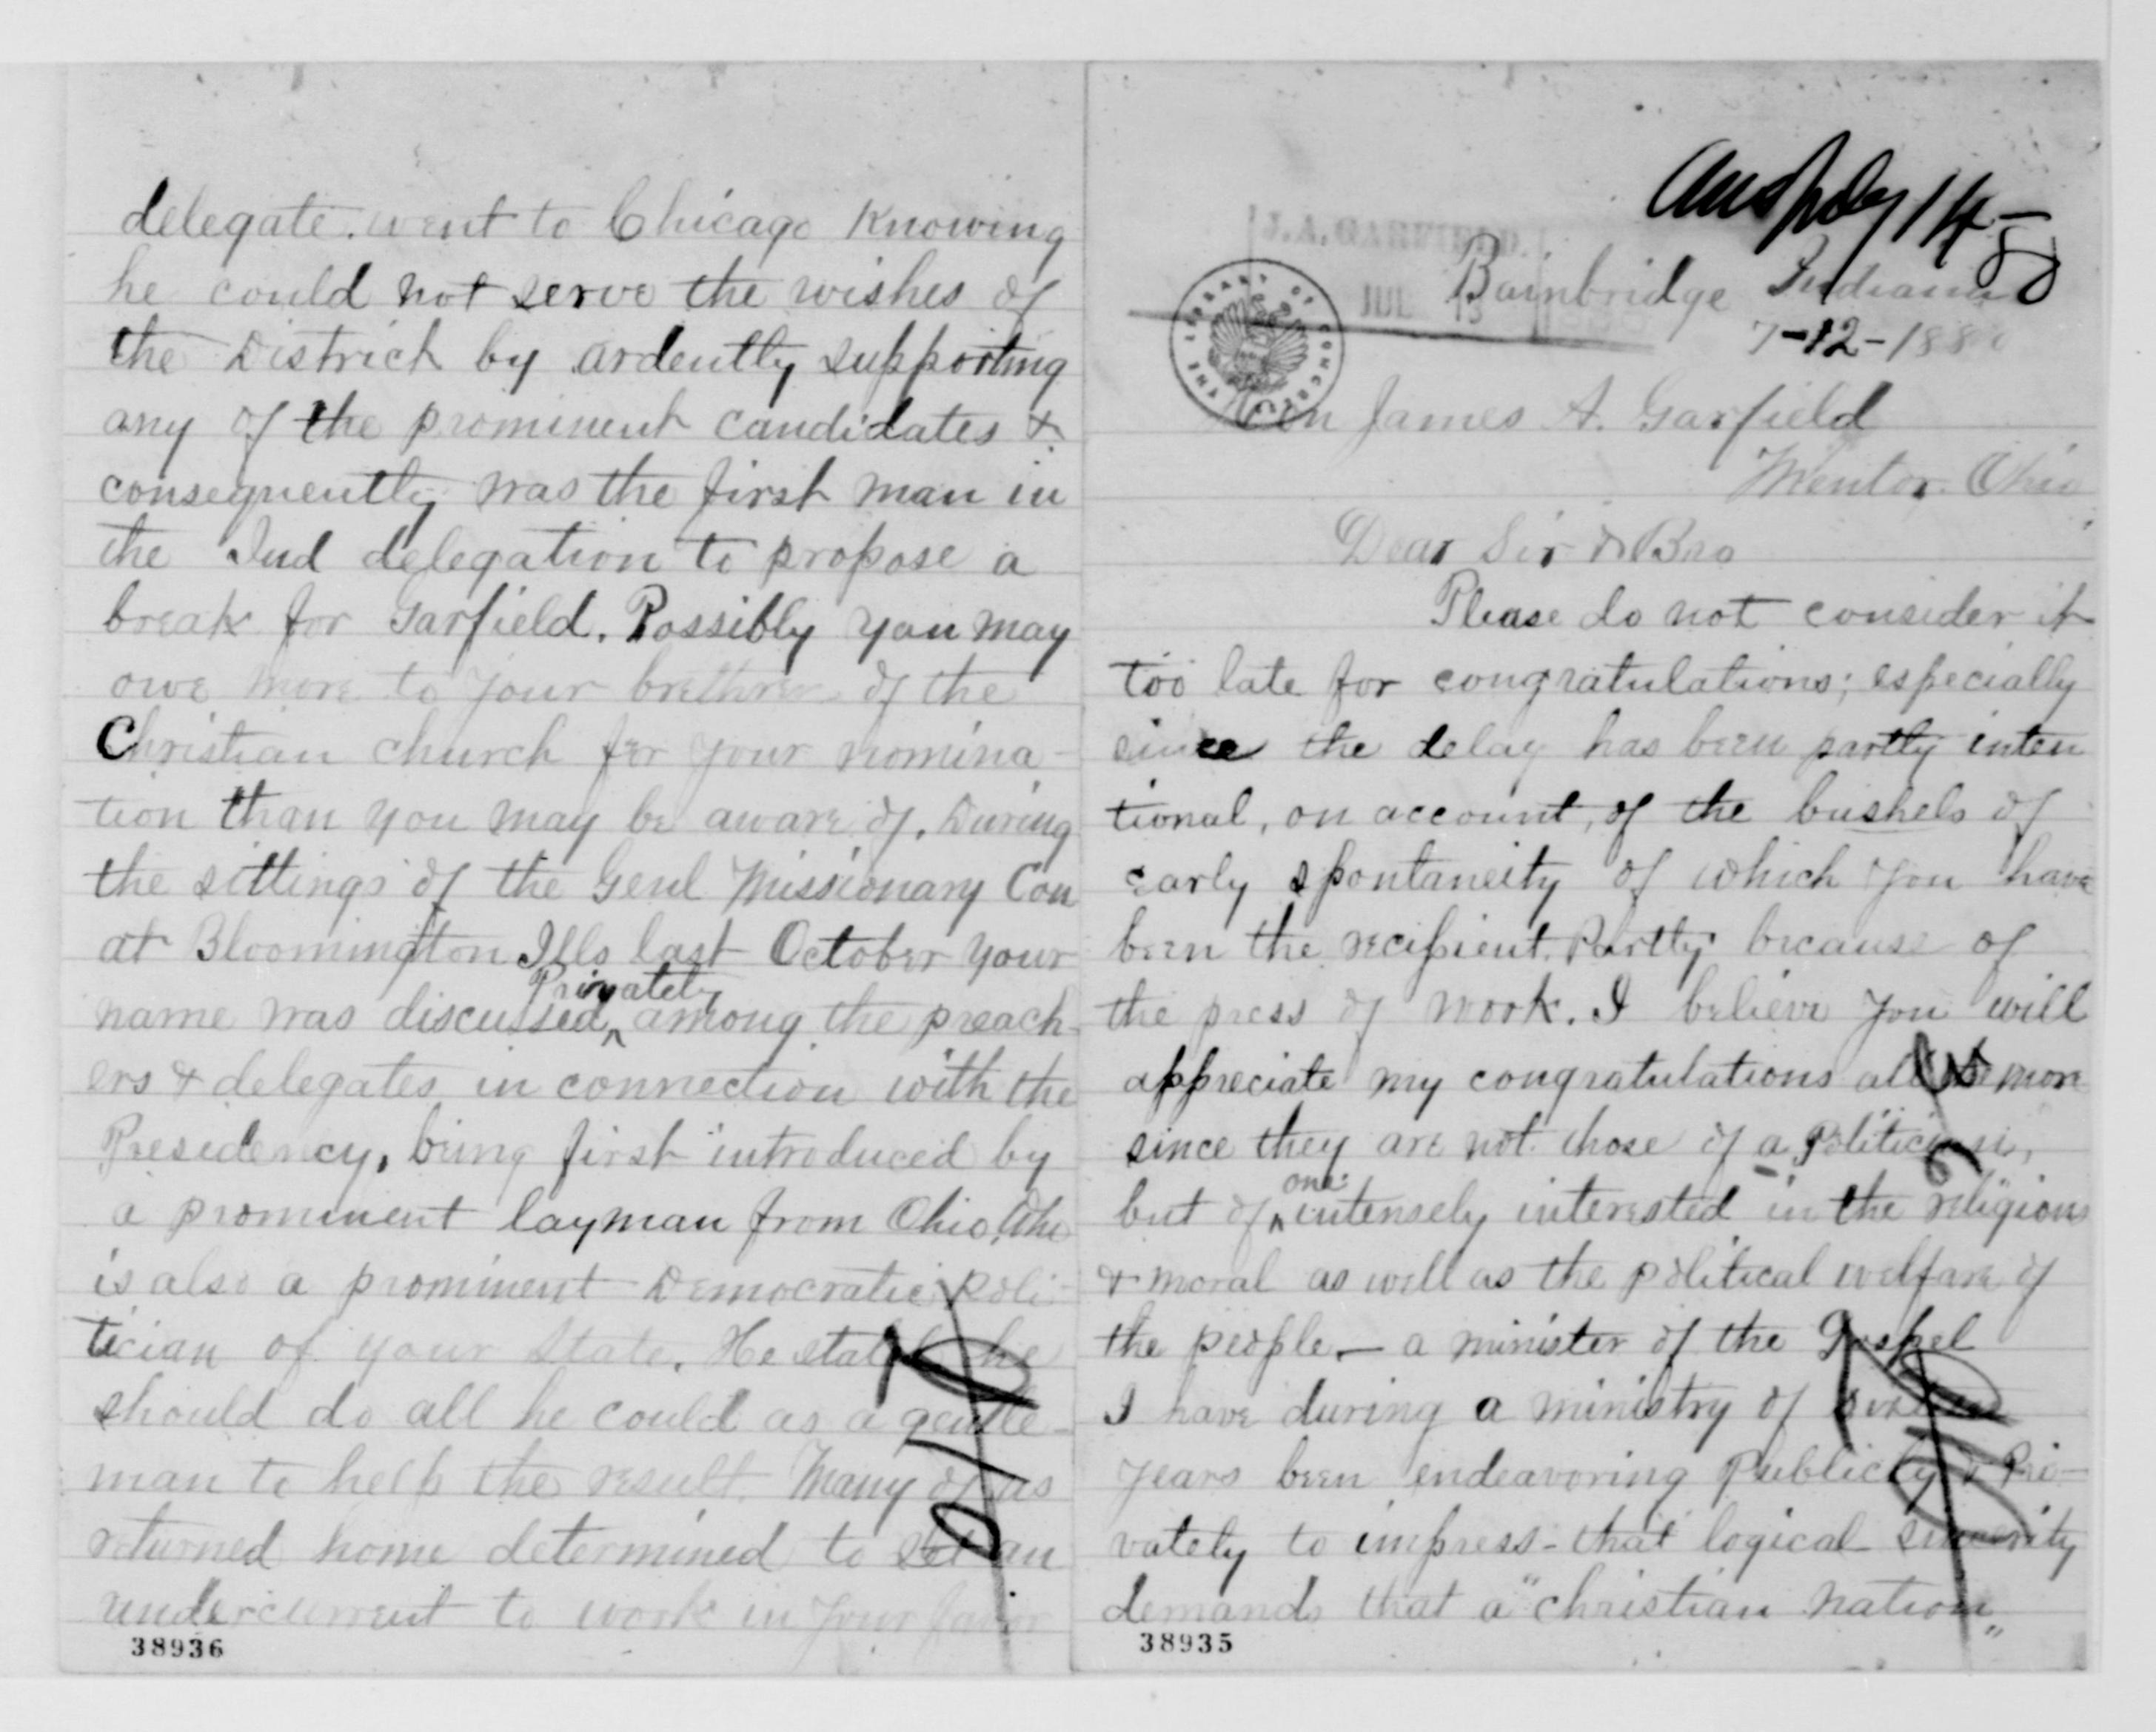 delegate. went to Chicago Knowing
he could not serve the wishes of
the District by ardently supporting
any of the prominent candidates &
consequently was the first man in
the Ind delegation to propose a
break for Garfield. Possibly you may
owe more to your brethren of the
Christian church for your nomina-
tion than you may be aware of. During
the sittings of the Genl Missionary Con
at Bloomington Ills last October your
Privately
name was discussed ^ among the preach-
ers & delegates in connection with the
Presidency, being first introduced by
a prominent layman from Ohio, who
is also a prominent Democratic poli-
tician of your State. He stated he
should do all he could as a gentle-
man to help the result. Many of us
returned home determined to set an
undercurrent to work in your favor
38936
Ans July 14-80
J. A. GARFIELD.
JUL 13
THE LIBRARY OF CONGRESS
Bainbridge Indiana
7-12-1880
Hon James A. Garfield
Mentor. Ohio
Dear Sir & Bro
Please do not consider it
too late for congratulations; especially
since the delay has been partly inten
tional, on account, of the bushels of
early spontaneity of which you have
been the recipient. Partly because of
the press of work. I believe you will
appreciate my congratulations all the more
since they are not those of a politician,
one
but of ^ intensely interested in the religious
& moral as well as the political welfare of
the people, — a minister of the Gospel
I have during a ministry of
years been endeavoring Publicly & Pri-
vately to impress - that logical sincerity
demands that a "christian nation"
38935